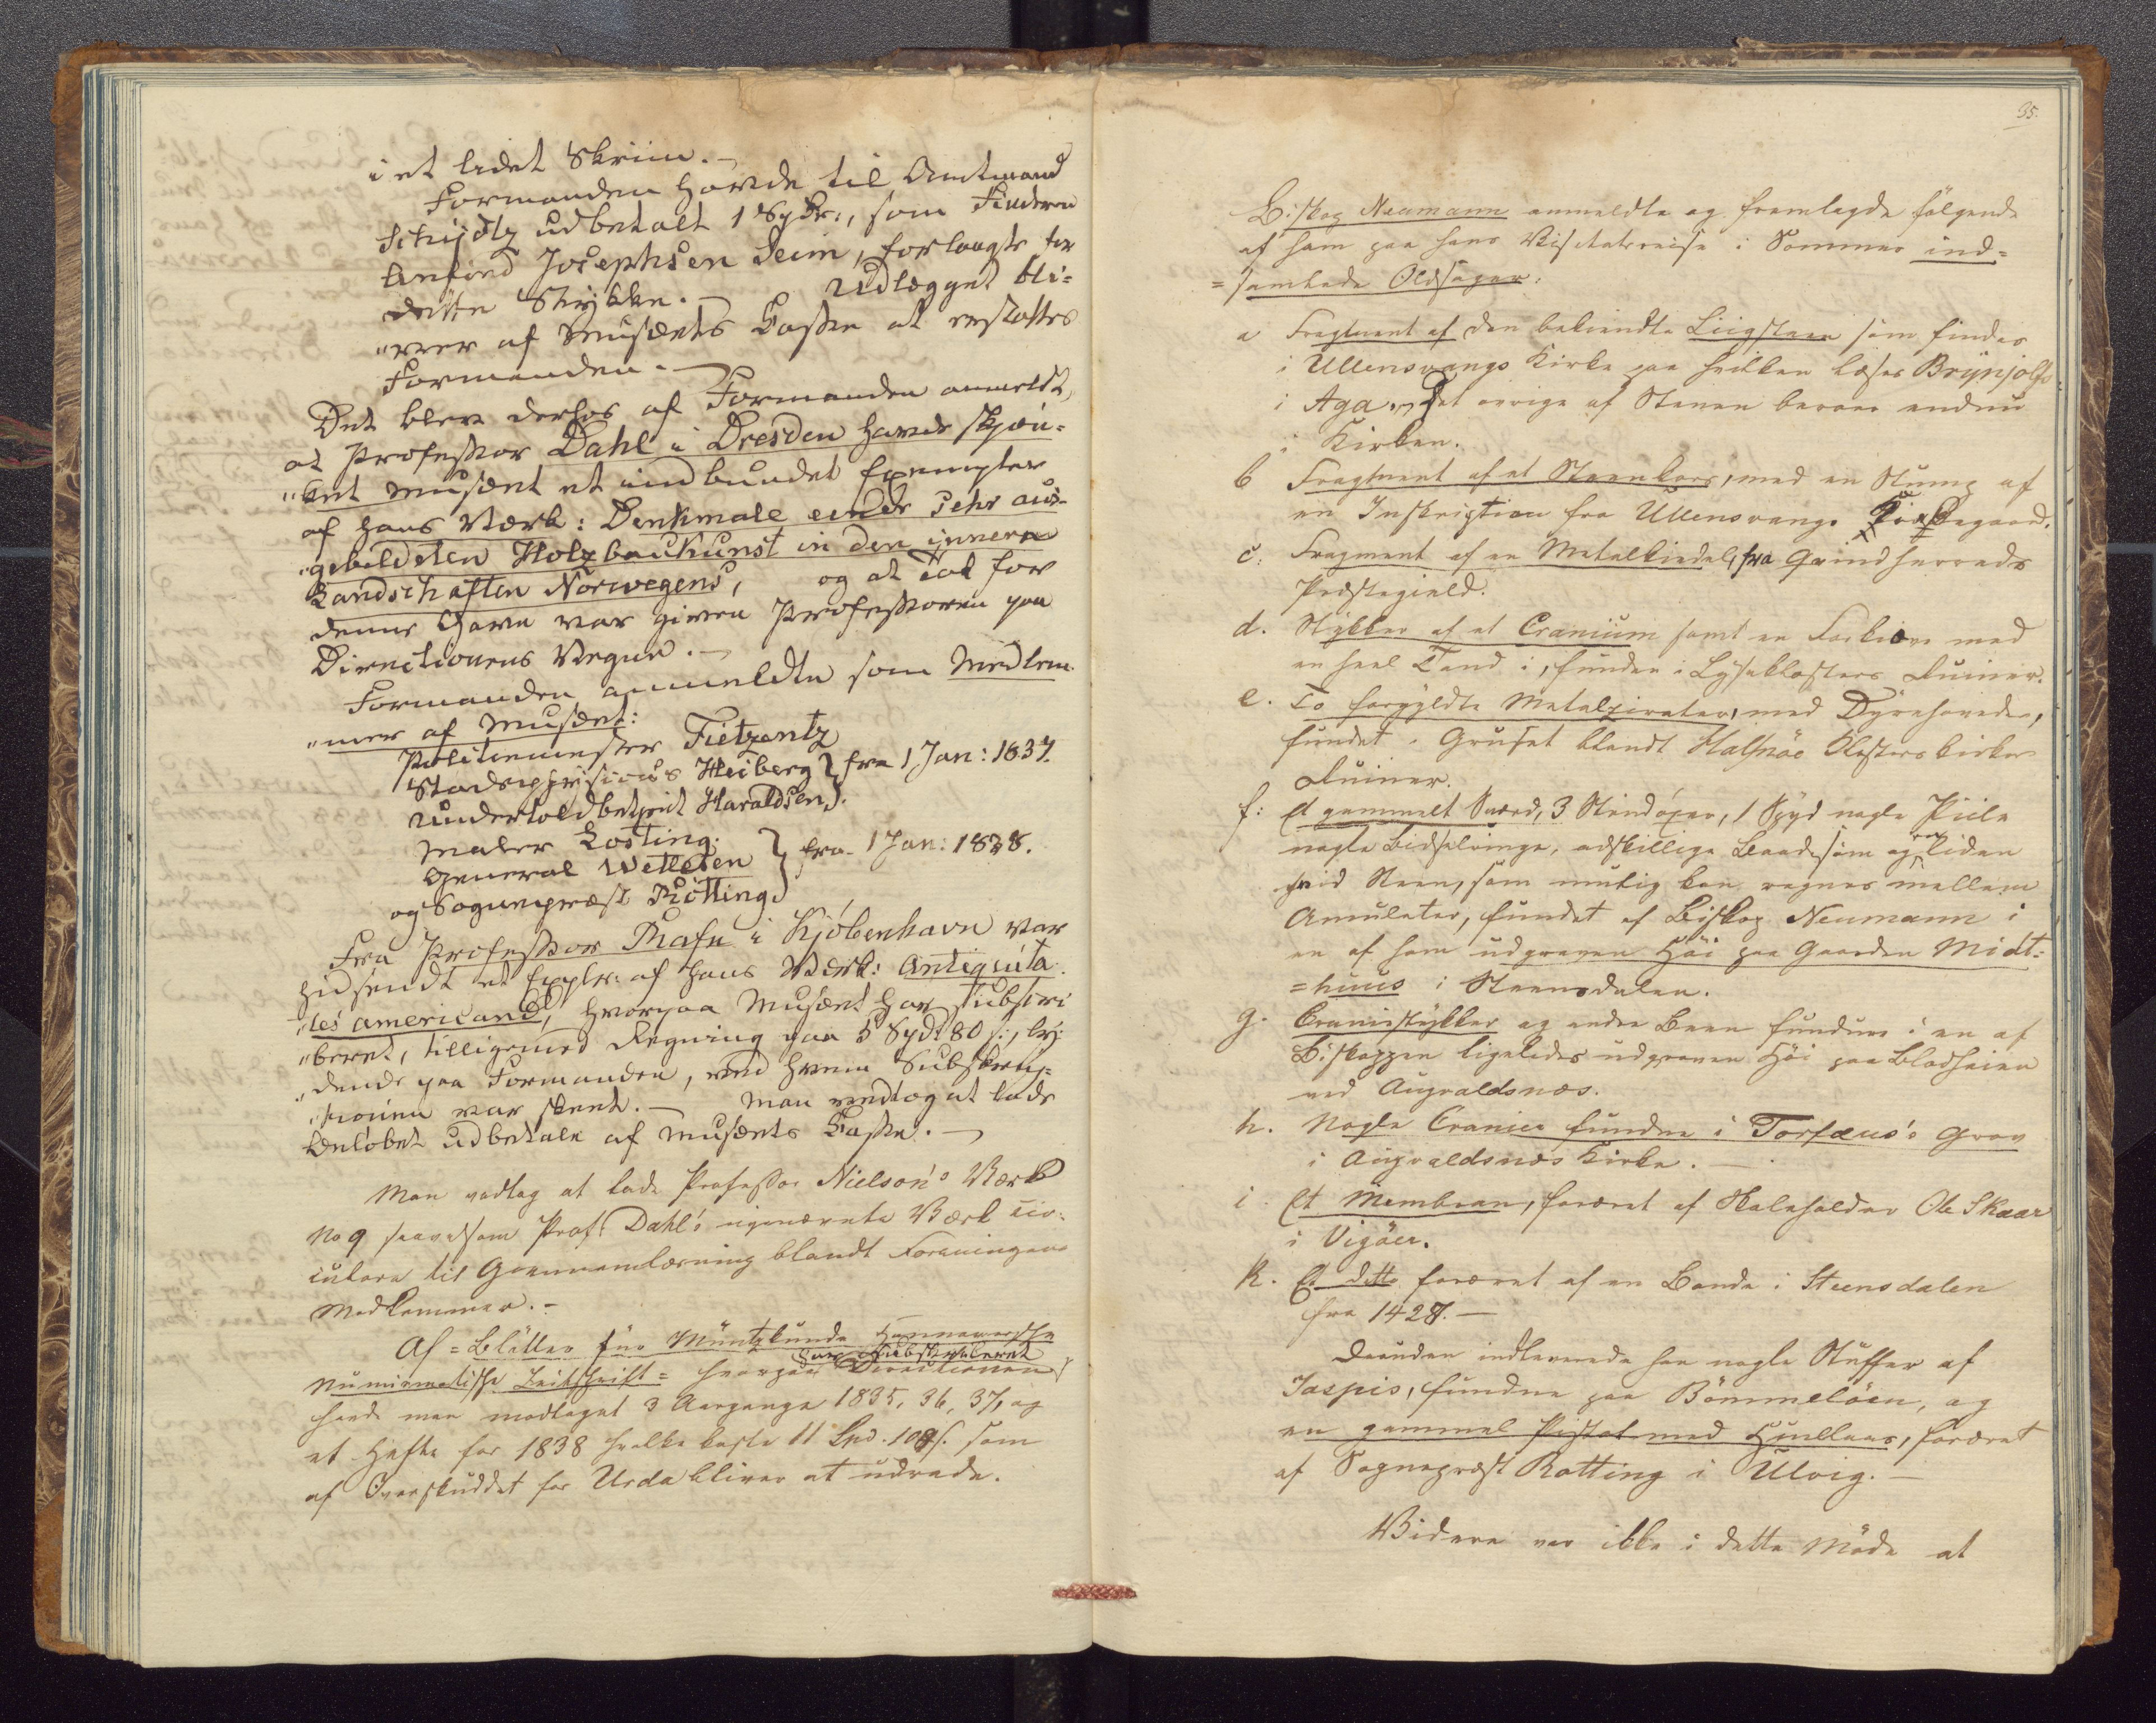 i et lidet Skriin. –
Formanden havde til Amtmand
Schydtz udbetalt 1 Spdlr:, som Finderen
Anfind Josephsen Seim, forlangte for
dette Stykke. – Udlægget bli-
"ver af Musæets Casse at erstattes
Formanden. –
Det blev derhos af Formanden anmeldt,
at Professor Dahl i Dresden havde skjæn-
"ket Musæet et indbundet Exemplar
af hans Værk: Denkmale einer sehr aus-
"gebildeten Holzbaukunst in den innern
Landschaften Norwegens, og at Tak for
denne Gave var given Professoren paa
Directionens Vegne. –
Formanden anmeldte som Medlem-
"mer af Musæet:
Politiemester Fietzentz
Stadsphysicus Heiberg } fra 1 Jan: 1837.
Undertoldbetjent Haraldsen
Maler Losting
General Wetlesen } fra 1 Jan: 1838.
og Sognepræst Rötting
Fra Professor Rafn i Kjöbenhavn var
hidsendt et Explr: af hans Værk: Antiquita-
"tes americanæ, hvorpaa Musæet har subscri
"beret, tilligemed Regning paa 5 Spdr 80 s:, ly-
"dende paa Formanden, ved hvem Subskrip-
"tionen var skeet. – Man vedtog at lade
Beløbet udbetale af Musæets Casse. –
Man vedtog at lade Professor Nielson's Værk
No 9 saavelsom Prof: Dahl's ovennævnte Værk cir-
culere til Gjennemlæsning blandt Foreningens
Medlemmer. –
Af = Blätter für Müntzkunde Hannoversche
Numismatische Zeitschrift = hvorpaa Directionen har Subskriberet
havde man modtaget 3 Aargange 1835, 36, 37, og
et Hefte for 1838 hvilke koste 11 Spd. 108 s. som
af Overskuddet for Urda bliver at udrede.
35.
Biskop Neumann anmeldte og fremlagde følgende
af ham paa hans Visitatsreise i Sommer ind-
=samlede Oldsager:
a Fragment af den bekiendte Liigsteen som findes
i Ullensvangs Kirke paa hvilken læses Brynjolfs
i Aga. Det øvrige af Stenen beroer endnu
i Kirken.
b Fragment af et Steenkors, med en Stump af
en Inskription fra Ullensvangs Kirkegaard.
c. Fragment af en Metalkiedel, fra Qvindherreds
Præstegield.
d. Stykker af et Cranium samt en med
en heel Tand i, funden i Lyseklosters Ruiner.
e. To forgyldte Metalzirater, med Dyrehoveder,
fundet i Gruset blandt Halsnöe Klosterskirkes
Ruiner.
f: Et gammelt Sværd, 3 Stridøxer, 1 Spyd nogle Piile
nogle Bidselringe, adskillige Baadsøm og en liden
hvid Steen, som muelig kan regnes mellem
Amuleter, fundet af Biskop Neumann i
en af ham udgraven Höi paa Gaarden Midt-
=huus i Steensdalen.
g. Craniistykker og andre Been fundne i en af
Biskoppen ligeledes udgraven Höi paa Blodheien
ved Augvaldsnæs.
h. Nogle Cranier fundne i Torfæus's Grav
i Augvaldsnæs Kirke. –
i. Et Membran, foræret af Skoleholder Ole Skaar
i Vigöer.
k. Et ditto foræret af en Bonde i Steensdalen
fra 1427. –
Desuden indleverede han nogle Stuffer af
Jaspis, fundne paa Bömmelöen, og
en gammel Pistol med Hiullaas, foræret
af Sognepræst Rötting i Ulvig. –
Videre var ikke i dette Möde at